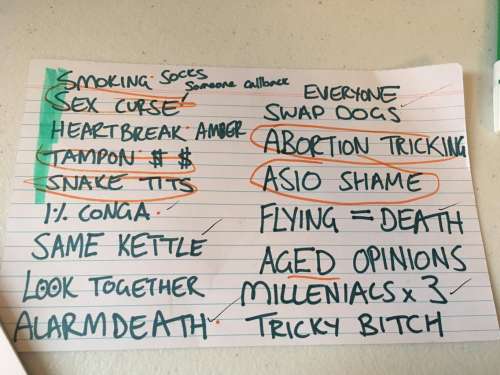 SMOKING. SOCKS
someone callback
SEX CURSE
HEARTBREAK. AMBER
TAMPON $ $
SNAKE TITS
1% CONGA.
SAME KETTLE
LOOK TOGETHER
ALARMDEATH.
EVERYONE
SWAP DOGS
ABORTION TRICKING
ASIO SHAME
FLYING = DEATH
AGED OPINIONS
MILLENIALS x 3
TRICKY BITCH